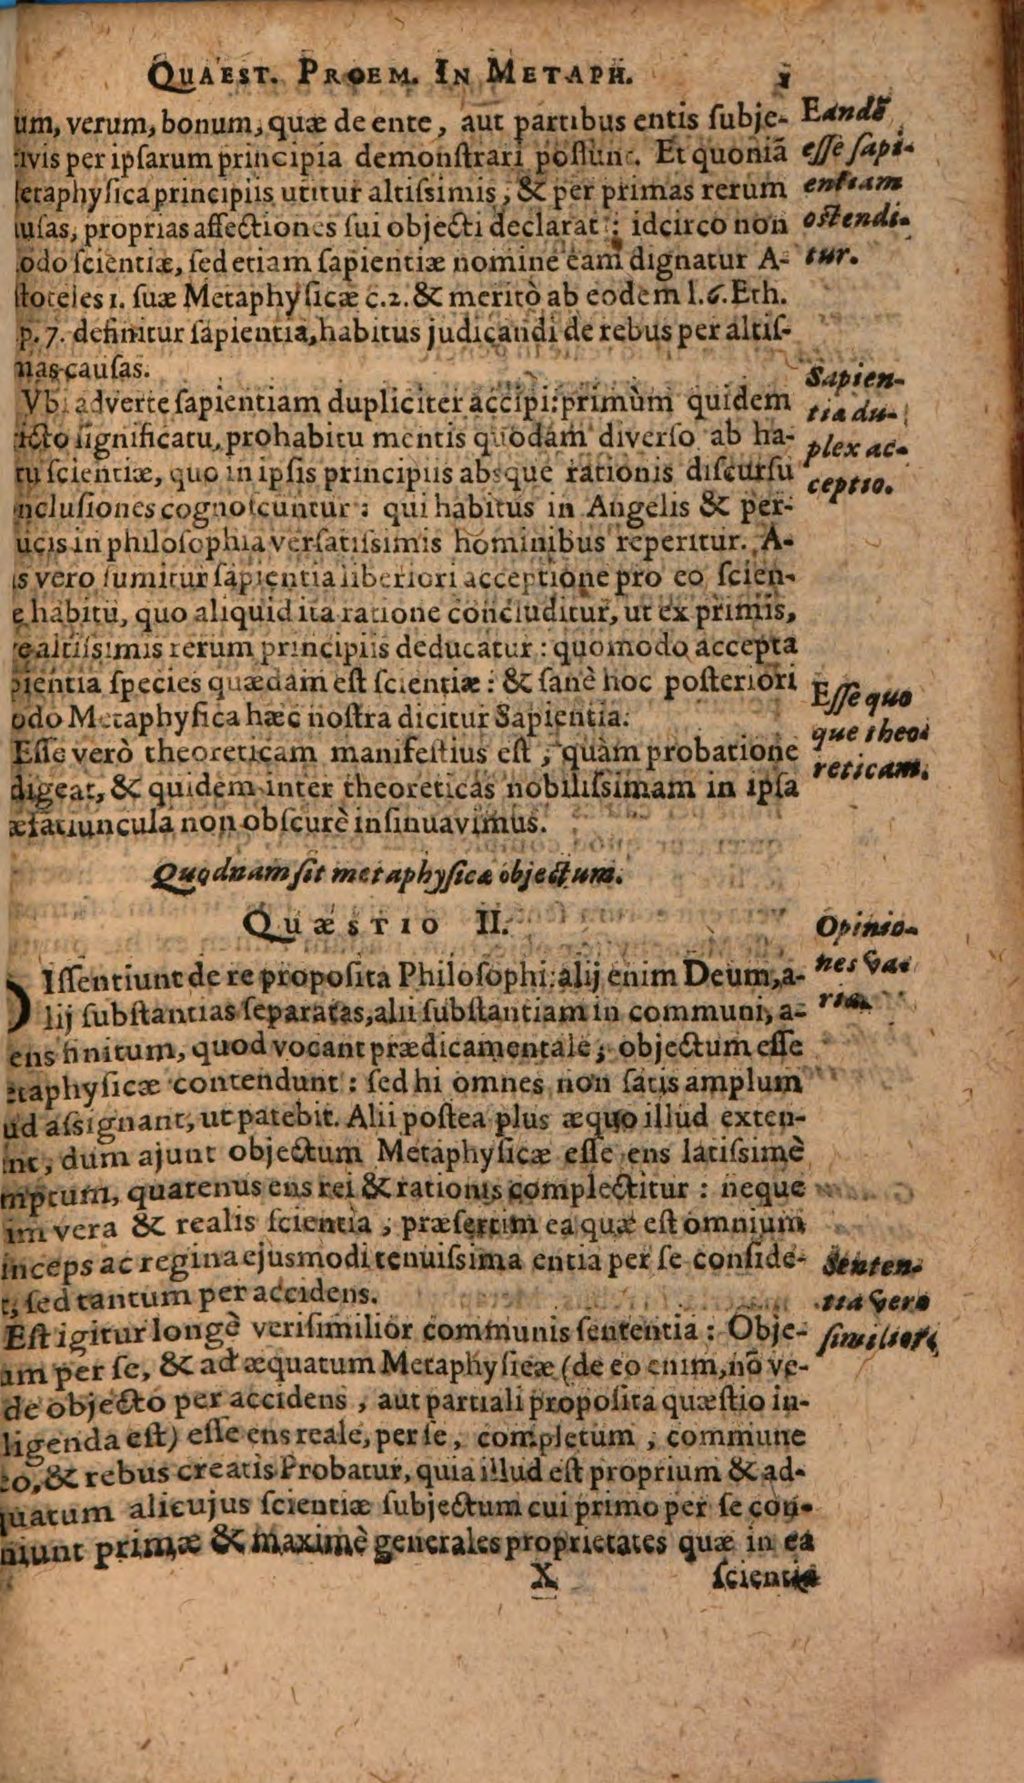 QUAEST. PROEM. IN METAPH. 3
um, verum, bonum, quæ de ente, aut partibus entis subje-
ivis per ipsarum principia demonstrari possunt. Et quoniã
etaphysica principiis utitur altissimis, & per primas rerum
usas, proprias affectiones sui objecti declarat; idcirco non
odo scientiæ, sed etiam sapientiæ nomine eam dignatur A-
stoteles 1. suæ Metaphysicæ c.2. & meritò ab eodem l.6.Eth.
p.7. definitur sapientia, habitus judicandi de rebus per altis-
mas causas.
Eandē
esse sapi-
entiam
ostendi-
tur.
Vbi adverte sapientiam dupliciter accipi: primùm quidem
icto significatu, pro habitu mentis quodam diverso ab ha-
tu scientiæ, quo in ipsis principiis absque rationis discursu
nclusiones cognoscuntur: qui habitus in Angelis & per-
ucis in philosophia versatissimis hominibus reperitur. A-
is vero sumitur sapientia liberiori acceptione pro eo scien-
e habitu, quo aliquid ita ratione concluditur, ut ex primis,
e altissimis rerum principiis deducatur: quomodo accepta
pientia species quædam est scientiæ: & sanè hoc posteriori
odo Metaphysica hæc nostra dicitur Sapientia.
Sapien-
tia du-
plex ac-
ceptio.
Esse verò theoreticam manifestius est, quàm probatione
digeat, & quidem inter theoreticas nobilissimam in ipsa
æfatiuncula non obscurè insinuavimus.
Esse quo
que theo
reticam.
Quodnam sit metaphysicæ objectum.
QUÆSTIO II.
Issentiunt de re proposita Philosophi: alij enim Deum, a-
lij substantias separatas, alii substantiam in communi, a-
ens finitum, quod vocant prædicamentale; objectum esse
etaphysicæ contendunt: sed hi omnes non satis amplum
ud assignant, ut patebit. Alii postea plus æquo illud exten-
unt, dum ajunt objectum Metaphysicæ esse ens latissimè
mptum, quatenus ens rei & rationis complectitur: neque
im vera & realis scientia, præsertim ea quæ est omnium
inceps ac regina ejusmodi tenuissima entia per se conside-
t, sed tantum per accidens.
Opinio-
nes va-
riæ.
Est igitur longè verisimilior communis sententia: Obje-
um per se, & adæquatum Metaphysicæ (de eo enim, nõ ve-
de objecto per accidens, aut partiali proposita quæstio in-
ligenda est) esse ens reale, per se, completum, commune
eo, & rebus creatis. Probatur, quia illud est proprium & ad-
quatum alicujus scientiæ subjectum cui primo per se con-
niunt primæ & maximè generales proprietates quæ in ea
Senten-
tia veri
similior
X scientia